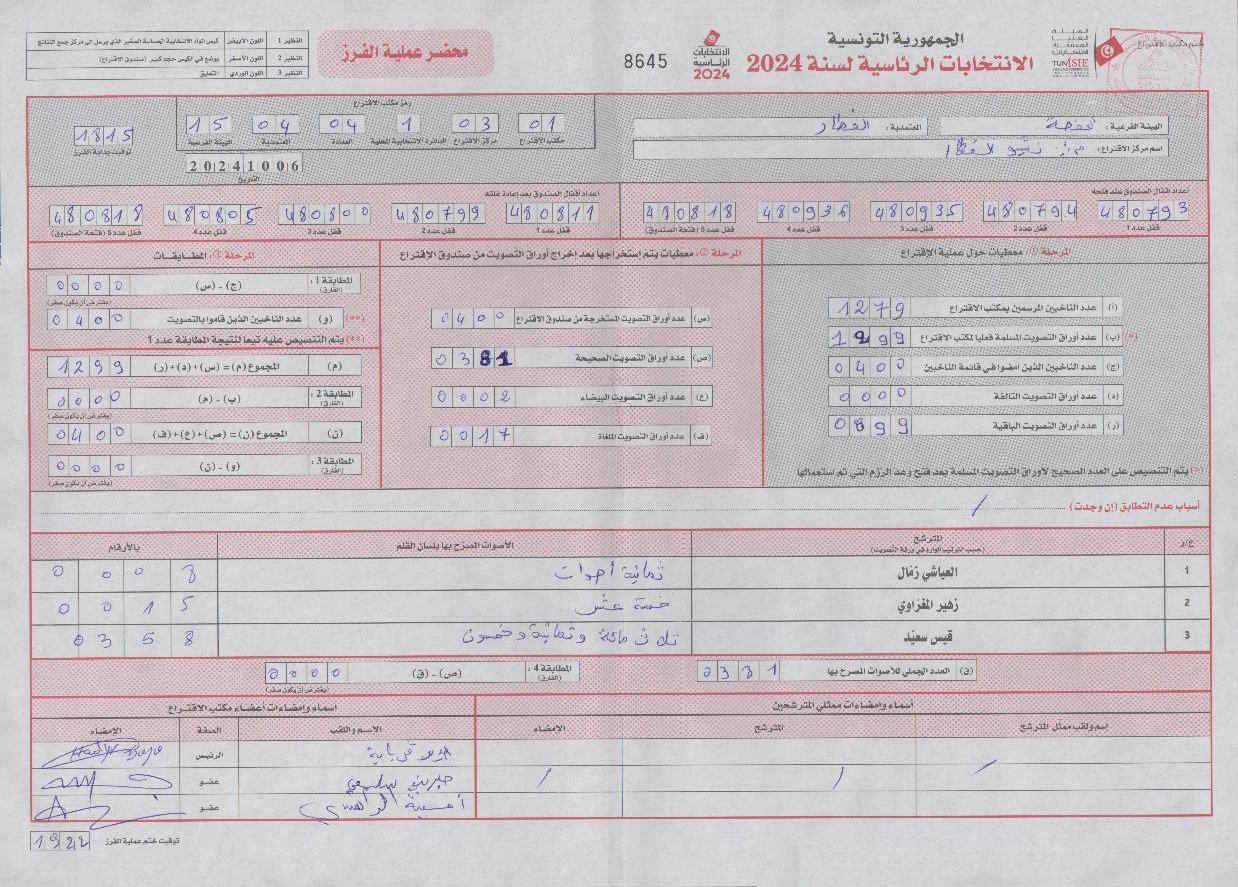 الجمهورية التونسية
الانتخابات الرئاسية لسنة 2024
الانتخابات الرئاسية 2024
8645
محضر عملية الفرز
النظير 1 اللون الأبيض
النظير 2 اللون الأصفر
النظير 3 اللون الوردي التعليق
الهيئة الفرعية : قفصة
المعتمدية : القطار
اسم مركز الاقتراع :
رمز مكتب الاقتراع
01 03 1 04 04 15
مكتب الاقتراع مركز الاقتراع الدائرة الانتخابية المحلية العمادة المعتمدية الهيئة الفرعية
20241006
التاريخ
1815
توقيت بداية الفرز
أعداد أقفال الصندوق عند فتحه
480793 480794 480935 480936 480818
قفل عدد 1 قفل عدد 2 قفل عدد 3 قفل عدد 4 قفل عدد 5 (فتحة الصندوق)
أعداد أقفال الصندوق بعد إعادة غلقه
480811 480799 480800 480805 480818
قفل عدد 1 قفل عدد 2 قفل عدد 3 قفل عدد 4 قفل عدد 5 (فتحة الصندوق)
المرحلة ①: معطيات حول عملية الاقتراع
(أ) عدد الناخبين المرسمين بمكتب الاقتراع 1279
(*) (ب) عدد أوراق التصويت المسلمة فعليا لمكتب الاقتراع 1299
(ج) عدد الناخبين الذين أمضوا في قائمة الناخبين 0400
(د) عدد أوراق التصويت التالفة 0000
(ر) عدد أوراق التصويت الباقية 0899
(*) يتم التنصيص على العدد الصحيح لأوراق التصويت المسلمة بعد فتح وعد الرزم التي تم استعمالها
المرحلة ②: معطيات يتم إستخراجها بعد إخراج أوراق التصويت من صندوق الإقتراع
(س) عدد أوراق التصويت المستخرجة من صندوق الاقتراع 0400
(ص) عدد أوراق التصويت الصحيحة 0381
(ع) عدد أوراق التصويت البيضاء 0002
(ف) عدد أوراق التصويت الملغاة 0017
المرحلة ③: المطابقات
المطابقة 1 : (الفارق) (ج) - (س) 0000
(يفترض أن يكون صفر)
(**) (و) عدد الناخبين الذين قاموا بالتصويت 0400
(**) يتم التنصيص عليه تبعا لنتيجة المطابقة عدد 1
(م) المجموع (م) = (س)+(د)+(ر) 1299
المطابقة 2 : (الفارق) (ب) - (م) 0000
(يفترض أن يكون صفر)
(ن) المجموع (ن) = (ص)+(ع)+(ف) 0400
المطابقة 3 : (الفارق) (و) - (ن) 0000
(يفترض أن يكون صفر)
أسباب عدم التطابق (إن وجدت) /
ع/ر المترشح (حسب الترتيب الوارد في ورقة التصويت) الأصوات المصرح بها بلسان القلم بالأرقام
1 العياشي زمال ثمانية أصوات 0008
2 زهير المغزاوي خمسة عشر 0015
3 قيس سعيد ثلاث مائة وثمانية وخمسون 0358
(ق) العدد الجملي للأصوات المصرح بها 0381
المطابقة 4 : (الفارق) (ص) - (ق) 0000
(يفترض أن يكون صفر)
أسماء وإمضاءات ممثلي المترشحين
اسم ولقب ممثل المترشح المترشح الإمضاء
/ / /
أسماء وإمضاءات أعضاء مكتب الاقتراع
الاسم واللقب الصفة الإمضاء
الرئيس
عضو
عضو
توقيت ختم عملية الفرز 1922